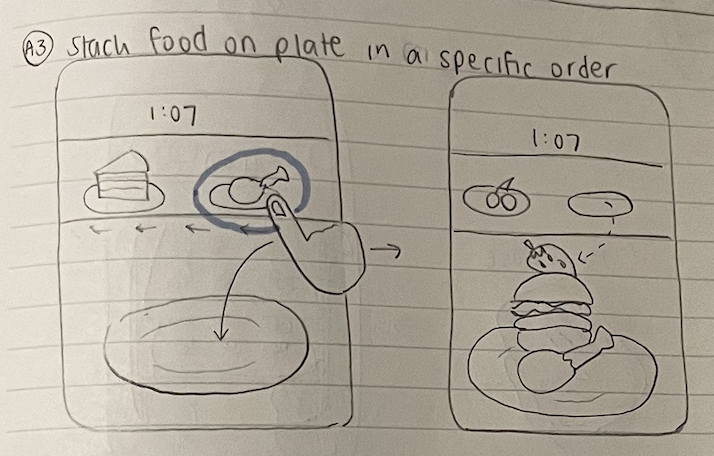 A3 Stack food on plate in a specific order
1:07
1:07